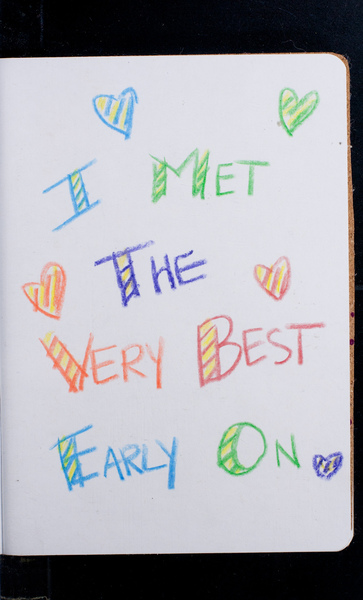 I Met
The
Very Best
Early On